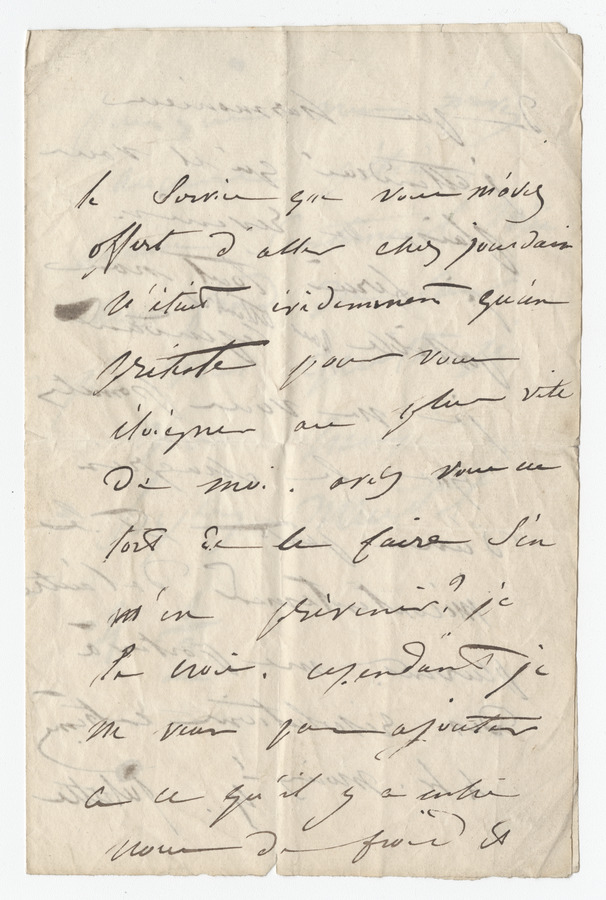 le service que vous m'avez
offert d'aller chez jourdain
n'était évidemment qu'un
prétexte pour vous
éloigner au plus vite
de moi. avez vous eu
tort de le faire sans
m'en prévenir? je
le crois. cependant je
ne veux pas ajouter
a ce qu'il y a entre
nous de froid et